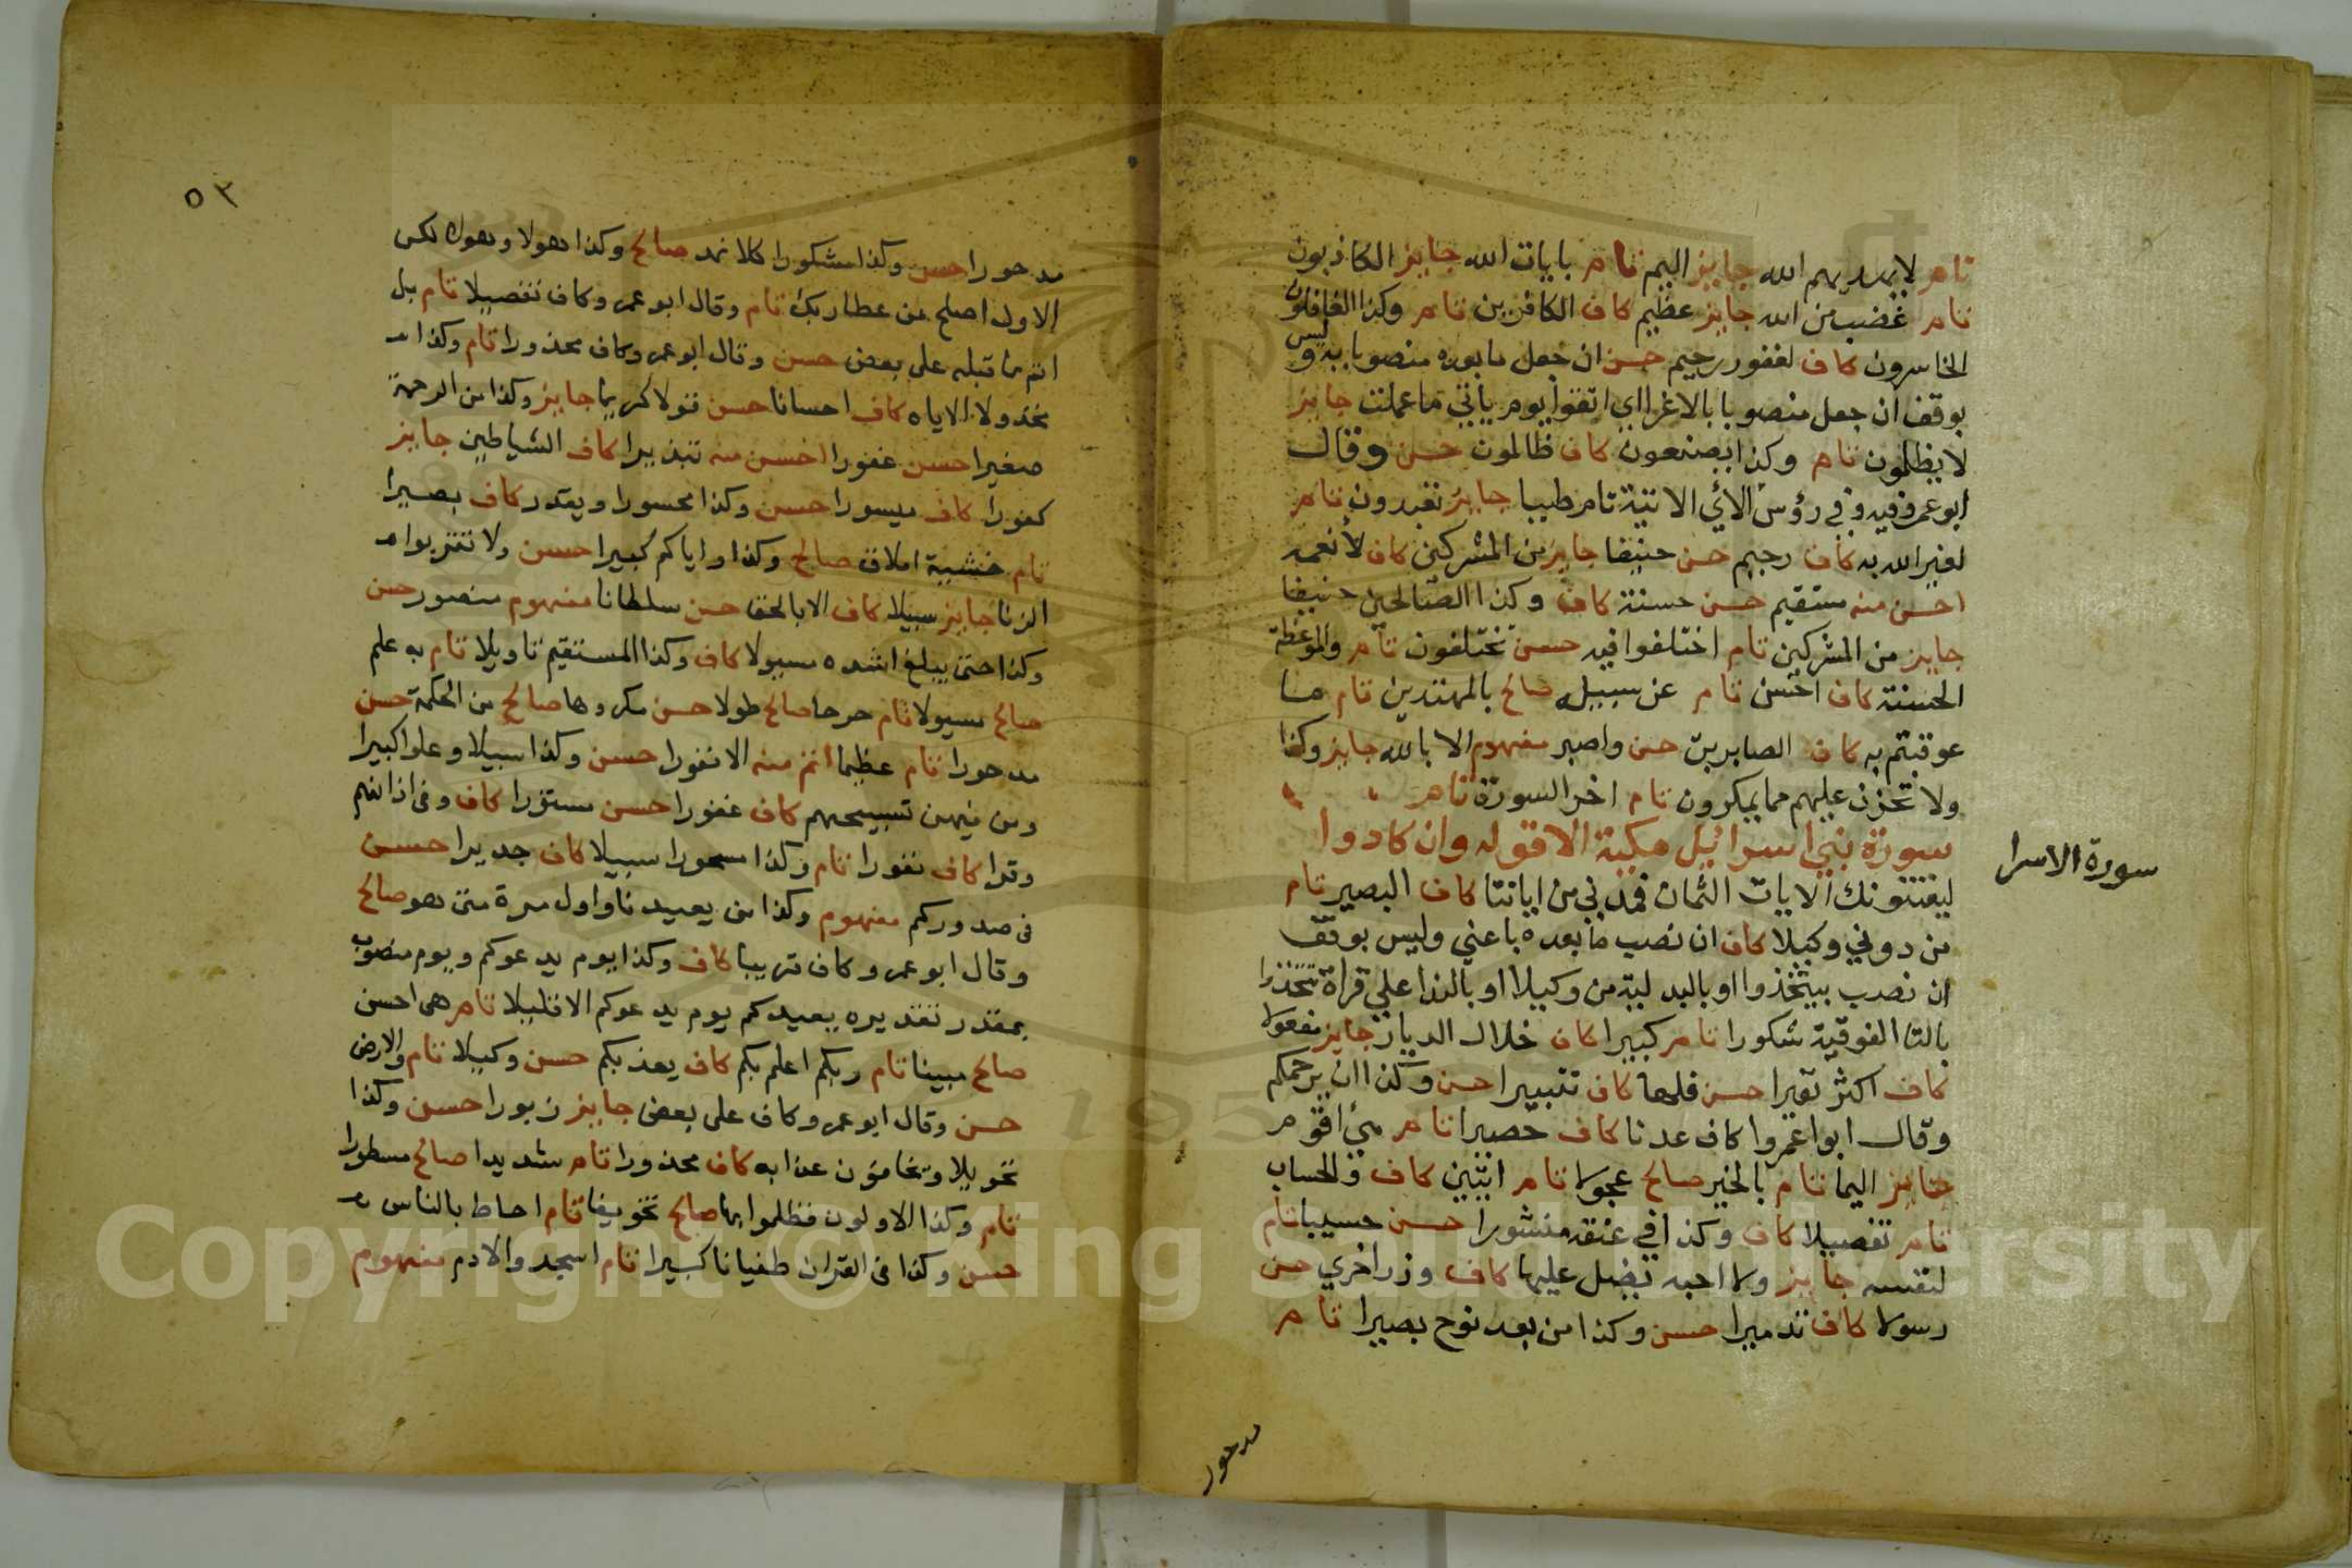 تام لا يهديهم الله جايز اليم تام بايات الله جايز الكاذبون
تام غضب من الله جايز عظيم كاف الكافرين تام وكذا الغافلون
الخاسرون كاف لغفور رحيم حسن ان جعل ما بعده منصوبا به وليس
بوقف ان جعل منصوبا بالاغرا اي اتقوا يوم ياتي ما عملت جايز
لا يظلمون تام وكذا يصنعون كاف ظالمون حسن وقال
ابو عمرو فيه وفي رؤس الآي الاتية تام طيبا جايز تعبدون تام
لغير الله به كاف رحيم حسن حنيفا جايز من المشركين كاف لأنعمه
احسن منه مستقيم حسن حسنة كاف وكذا الصالحين حنيفا
جايز من المشركين تام اختلفوا فيه حسن تختلفون تام والموعظة
الحسنة كاف احسن تام عن سبيله صالح بالمهتدين تام ما
عوقبتم به كاف الصابرين حسن واصبر مفهوم الا بالله جايز وكذا
ولا تحزن عليهم مما يمكرون تام اخر السورة تام
سورة بني اسرائيل مكية الا قوله وان كادوا
سورة الاسرا
ليفتنونك الايات الثمان فمدني من اياتنا كاف البصير تام
من دوني وكيلا كاف ان نصب ما بعده باعني وليس بوقف
ان نصب بيتخذوا او بالبدلية من وكيلا او بالندا علي قراة تتخذوا
بالتا الفوقية شكورا تام كبيرا كاف خلال الديار جايز مفعولا
كاف اكثر نفيرا حسن فلها كاف تتبيرا حسن وكذا ان يرحمكم
وقال ابوا عمروا كاف عدنا كاف حصيرا تام هي اقوم
جايز اليما تام بالخير صالح عجولا تام ايتين كاف والحساب
تام تفصيلا كاف وكذا في عنقه منشورا حسن حسيبا تام
لنفسه جايز ولا احبه يضل عليها كاف وزر اخري حسن
رسولا كاف تدميرا حسن وكذا من بعد نوح بصيرا تام
مدحور
٥٣
مدحورا حسن وكذا مشكورا كلا نمد صالح وكذا هولا وهولا لكن
الاول اصلح من عطا ربك تام وقال ابو عمرو كاف تفضيلا تام بل
اتم ما قبله علي بعض حسن وقال ابو عمرو كاف محذورا تام وكذا
مخذولا الا اياه كاف احسانا حسن قولا كريما جايز وكذا من الرحمة
صغيرا حسن غفورا احسن منه تبذيرا كاف الشياطين جايز
كفورا كاف ميسورا حسن وكذا محسورا ويقدر كاف بصيرا
تام خشية املاق صالح وكذا واياكم كبيرا حسن ولا تقربوا
الزنا جايز سبيلا كاف الا بالحق حسن سلطانا مفهوم منصورا حسن
وكذا حتي يبلغ اشده مسولا كاف وكذا المستقيم تاويلا تام به علم
صالح مسيولا تام مرحا صالح طولا حسن مكروها صالح من الحكمة حسن
مدحورا تام عظيما اتم منه الا نفورا حسن وكذا سبيلا وعلوا كبيرا
ومن فيهن تسبيحهم كاف غفورا حسن مستورا كاف وفي اذانهم
وقرا كاف نفورا تام وكذا مسحورا سبيلا كاف جديرا حسن
في صدوركم مفهوم وكذا من يعيدنا واول مرة متي هو صالح
وقال ابو عمرو كاف قريبا كاف وكذا يوم يدعوكم ويوم منصوب
بمقدر تقديره يعيدكم يوم يدعوكم الا قليلا تام هي احسن
صالح مبينا تام ربكم اعلم بكم كاف يعذبكم حسن وكيلا تام والارض
حسن وقال ابو عمرو كاف علي بعض جايز زبورا حسن وكذا
تحويلا ويخافون عذابه كاف محذورا تام شديدا صالح مسطورا
تام وكذا الاولون فظلموا بها صالح تخويفا تام احاط بالناس
حسن وكذا في القران طغيانا كبيرا تام اسجدوا لادم مفهوم
Copyright © King Saud University